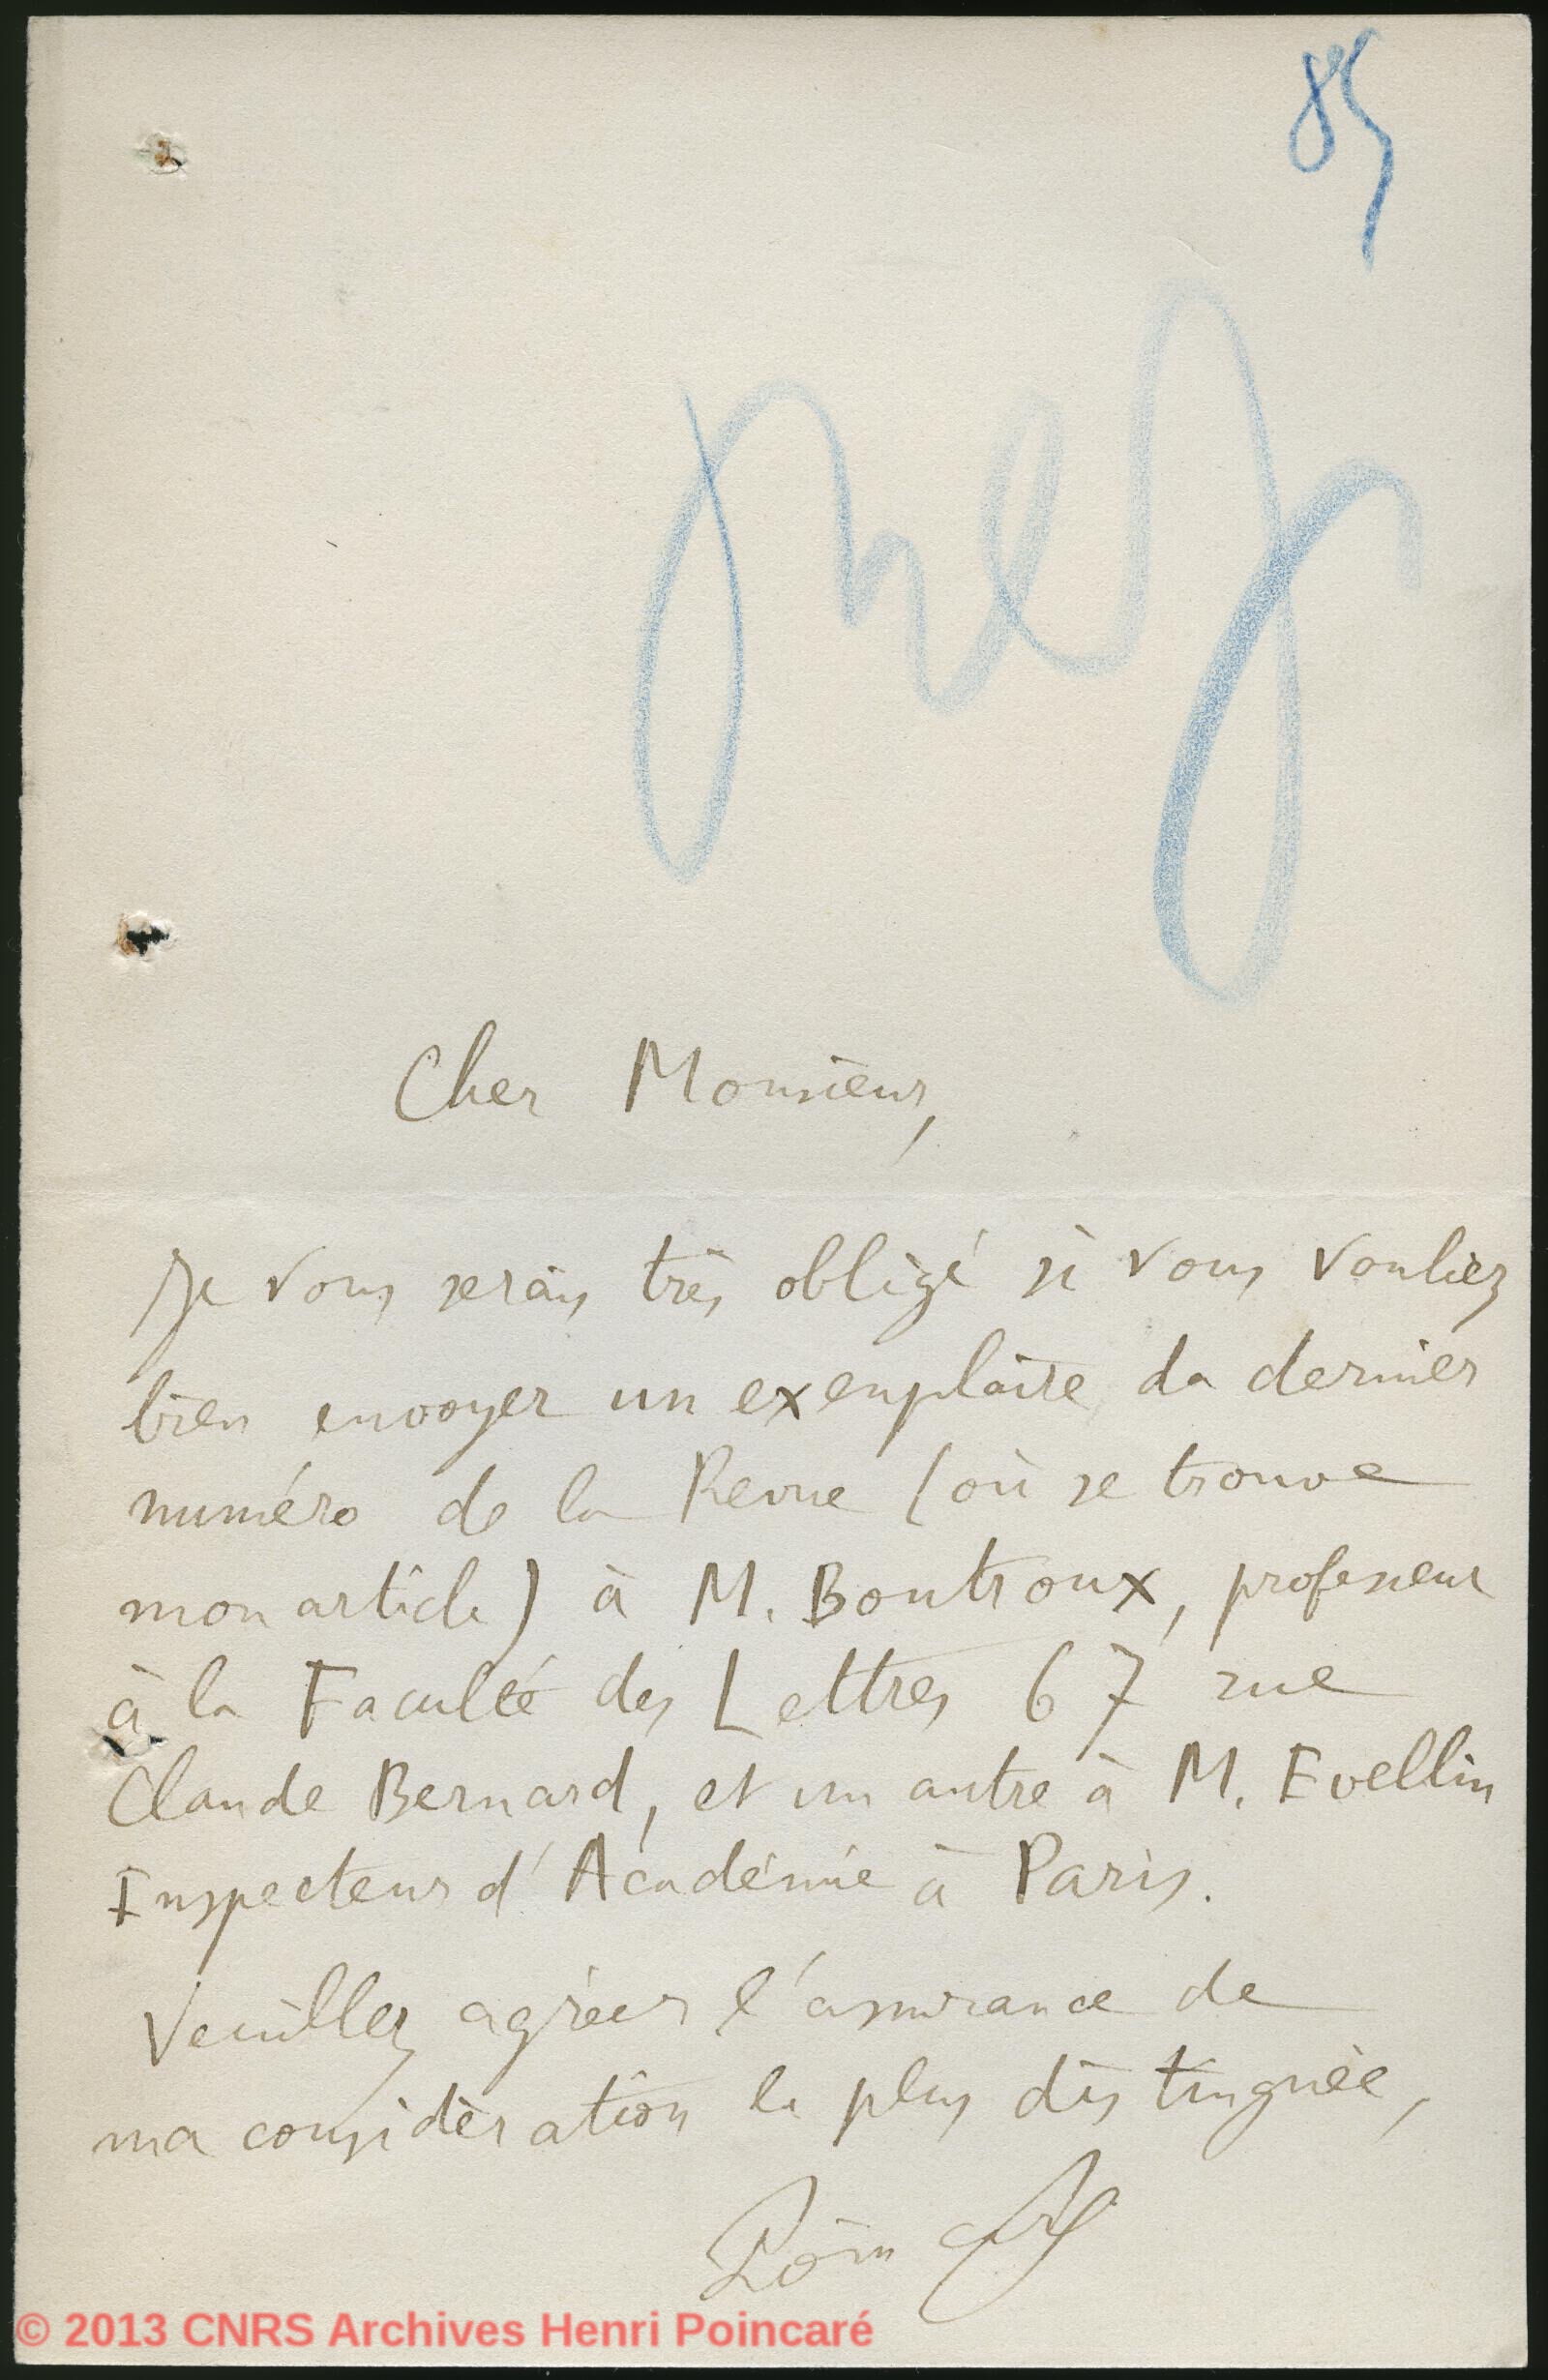 85
Cher Monsieur,
Je vous serais très obligé si vous vouliez
bien envoyer un exemplaire du dernier
numéro de la Revue (où se trouve
mon article) à M. Boutroux, professeur
à la Faculté des Lettres 67 rue
Claude Bernard, et un autre à M. Evellin
Inspecteur d'Académie à Paris.
Veuillez agréer l'assurance de
ma considération la plus distinguée,
Poincaré
© 2013 CNRS Archives Henri Poincaré